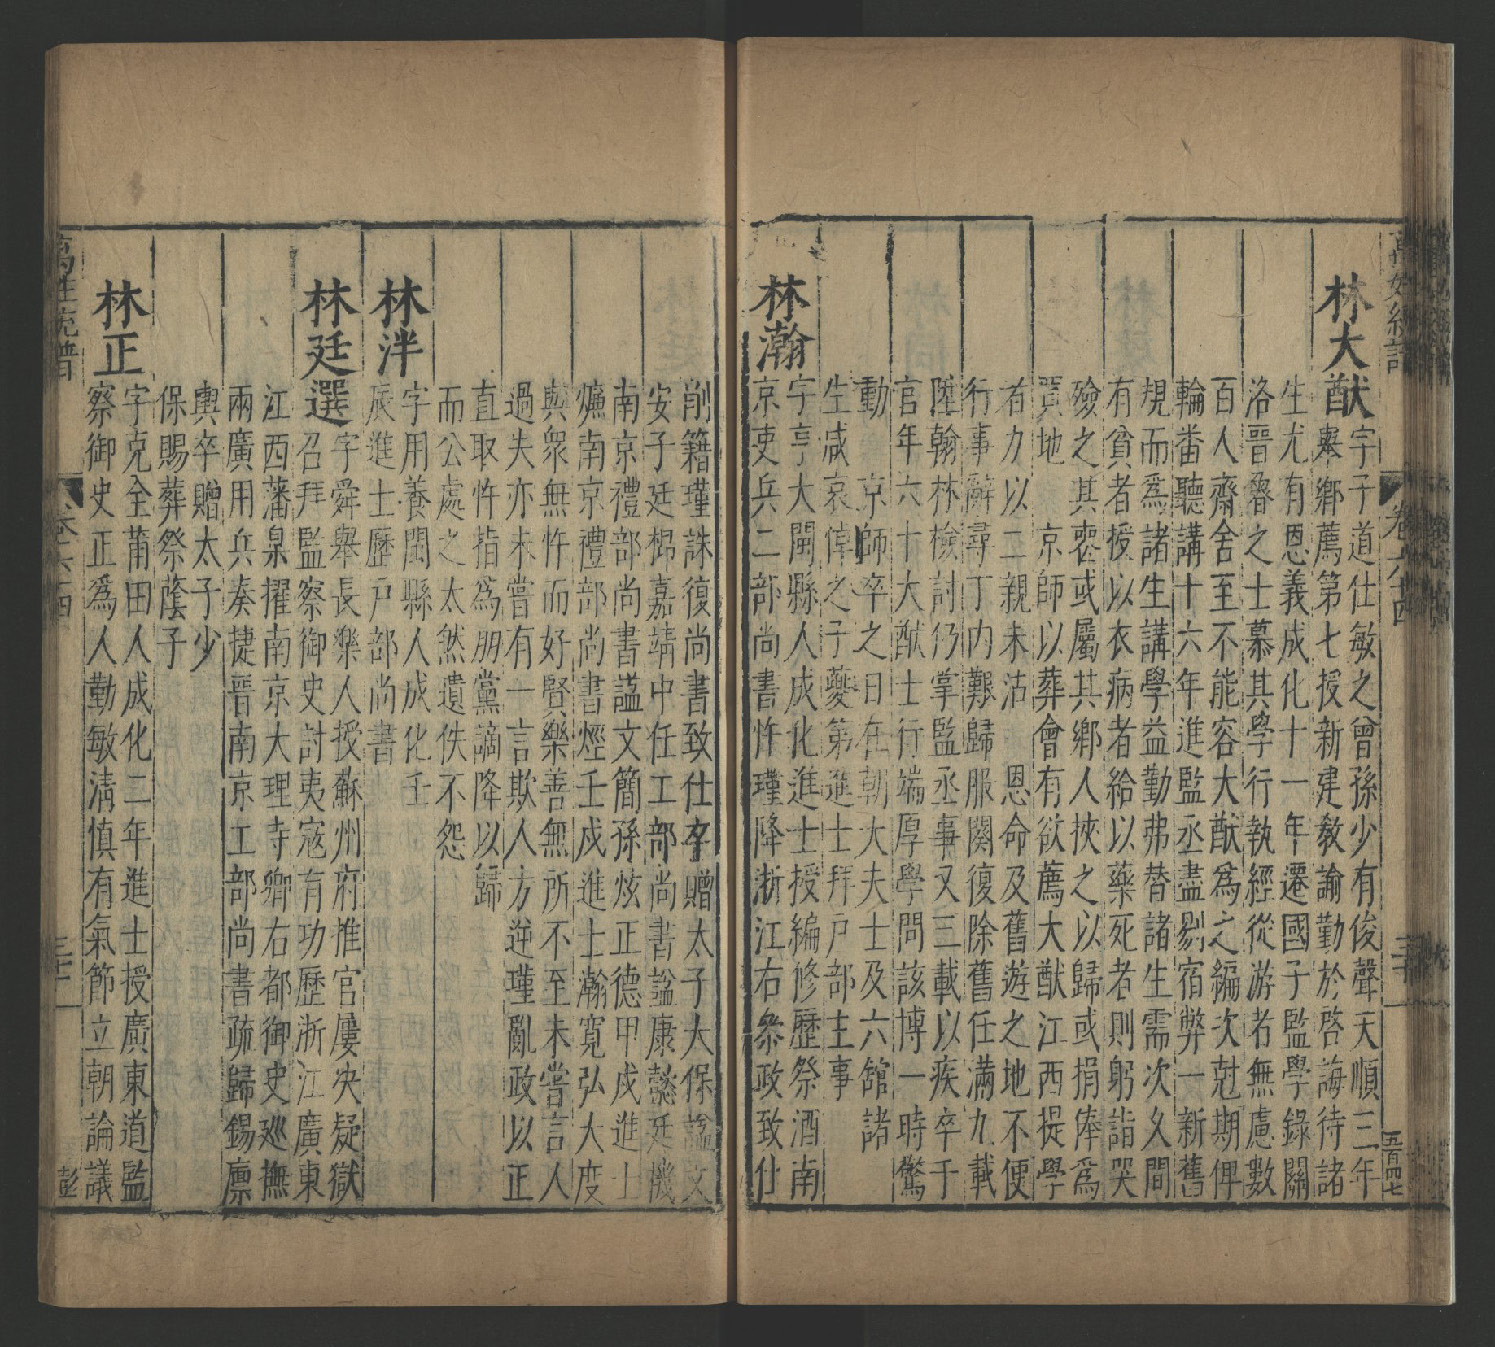 萬姓統譜
卷六十四
三十一
五百四七
林大猷字子道仕敏之曾孫少有俊聲天順三年
舉鄉薦第七授新建教諭勤於啓誨待諸
生尤有恩義成化十一年遷國子監學錄關
洛晉魯之士慕其學行執經從游者無慮數
百人齋舍至不能容大猷為之編次尅期俾
輪畨聽講十六年進監丞盡剔宿弊一新舊
規而為諸生講學益勤弗替諸生需次乆間
有貧者授以衣病者給以藥死者則躬詣哭
殮之其喪或屬其鄉人挾之以歸或捐俸為
買地 京師以葬會有欲薦大猷江西提學
者力以二親未沾 恩命及舊遊之地不便
行事辭尋丁內艱歸服闋復除舊任滿九載
陞翰林檢討仍掌監丞事又三載以疾卒于
官年六十大猷士行端厚學問該博一時驚
動 京師卒之日在朝大夫士及六館諸
生咸哀偉之子夔第進士拜戶部主事
林瀚字亨大閩縣人成化進士授編修歷祭酒南
京吏兵二部尚書忤瑾降浙江右叅政致仕
削籍瑾誅復尚書致仕卒贈太子太保謚文
安子廷㭿嘉靖中任工部尚書謚康懿廷機
南京禮部尚書謚文簡孫炫正德甲戌進士
爌南京禮部尚書烴壬戌進士瀚寬弘大度
與衆無忤而好賢樂善無所不至未嘗言人
過失亦未嘗有一言欺人方逆瑾亂政以正
直取忤指為朋黨謫降以歸
而公處之太然遺佚不怨
林泮字用養閩縣人成化壬
辰進士歷戶部尚書
林廷選字舜舉長樂人授蘇州府推官屢決疑獄
召拜監察御史討夷寇有功歷浙江廣東
江西藩臬擢南京大理寺卿右都御史廵撫
兩廣用兵奏捷晉南京工部尚書疏歸錫廪
輿卒贈太子少
保賜葬祭蔭子
林正字克全莆田人成化二年進士授廣東道監
察御史正為人勤敏清慎有氣節立朝論議
萬姓統譜
卷六十四
三十一
彭